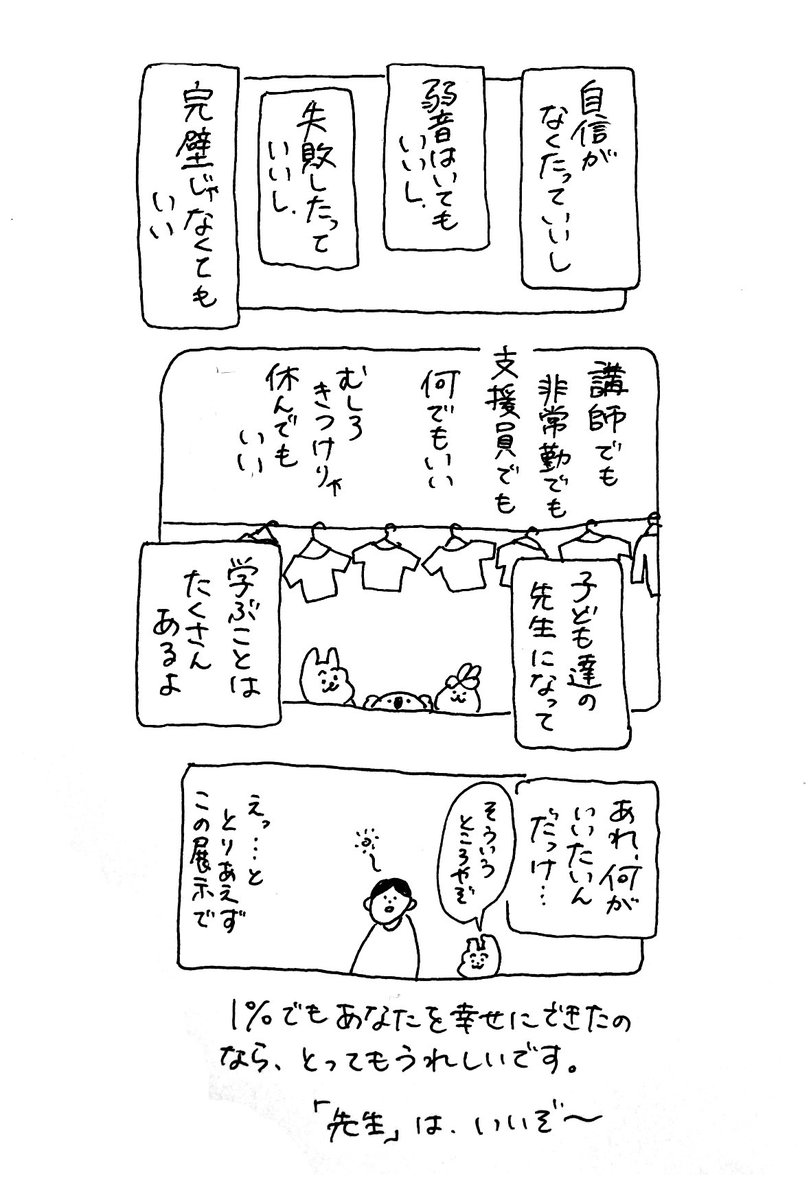 自信が
なくたっていいし
弱音はいても
いいし、
失敗したって
いいし、
完璧じゃなくても
いい
講師でも
非常勤でも
支援員でも
何でもいい
むしろ
きつけりゃ
休んでも
いい
子ども達の
先生になって
学ぶことは
たくさん
あるよ
あれ、何が
いいたいん
だっけ…
そういう
ところやぞ
えっ…と
とりあえず
この展示で
1%でもあなたを幸せにできたの
なら、とってもうれしいです。
「先生」は、いいぞ〜